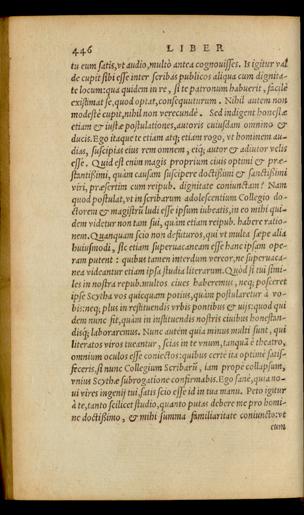 446 LIBER
tu eum satis, vt audio, multò antea cognouisses. Is igitur val
de cupit sibi esse inter scribas publicos aliqua cum dignita-
te locum: qua quidem in re, si te patronum habuerit, facilè
existimat se, quod optat, consequuturum. Nihil autem non
modestè cupit, nihil non verecundè. Sed indigent honestæ
etiam & iustæ postulationes, autoris cuiusdam omnino &
ducis. Ego itaque te etiam atq; etiam rogo, vt hominem au-
dias, suscipias eius rem omnem, eiq; autor & adiutor velis
esse. Quid est enim magis proprium ciuis optimi & præ-
stantißimi, quàm causam suscipere doctißimi & sanctißimi
viri, præsertim cum reipub. dignitate coniunctam? Nam
quod postulat, vt in scribarum adolescentium Collegio do-
ctorem & magistrū ludi esse ipsum iubeatis, in eo mihi qui-
dem videtur non tam sui, quàm etiam reipub. habere ratio-
nem. Quanquam scio non defuturos, qui vt multa sæpe alia
huiusmodi, sic etiam superuacaneam esse hanc ipsam ope-
ram putent: quibus tamen interdum vereor, ne superuaca-
nea videantur etiam ipsa studia literarum. Quòd si tui simi-
les in nostra repub. multos ciues haberemus, neq; posceret
ipse Scytha vos quicquam potius, quàm postularetur à vo-
bis: neq; plus in restituendis vrbis pontibus & vijs: quod qui
dem nunc fit, quàm in instituendis nostris ciuibus honestan-
disq; laboraremus. Nunc autem quia minus multi sunt, qui
literatos viros tueantur, scias in te vnum, tanquã è theatro,
omnium oculos esse coniectos: quibus certè ita optimè satis-
feceris, si nunc Collegium Scribarū, iam prope collapsum,
vnius Scythæ subrogatione confirmabis. Ego sanè, qua no-
ui vires ingenij tui, satis scio esse id in tua manu. Peto igitur
à te, tanto scilicet studio, quanto putas debere me pro homi-
ne doctißimo, & mihi summa familiaritate coniuncto: vt
cum